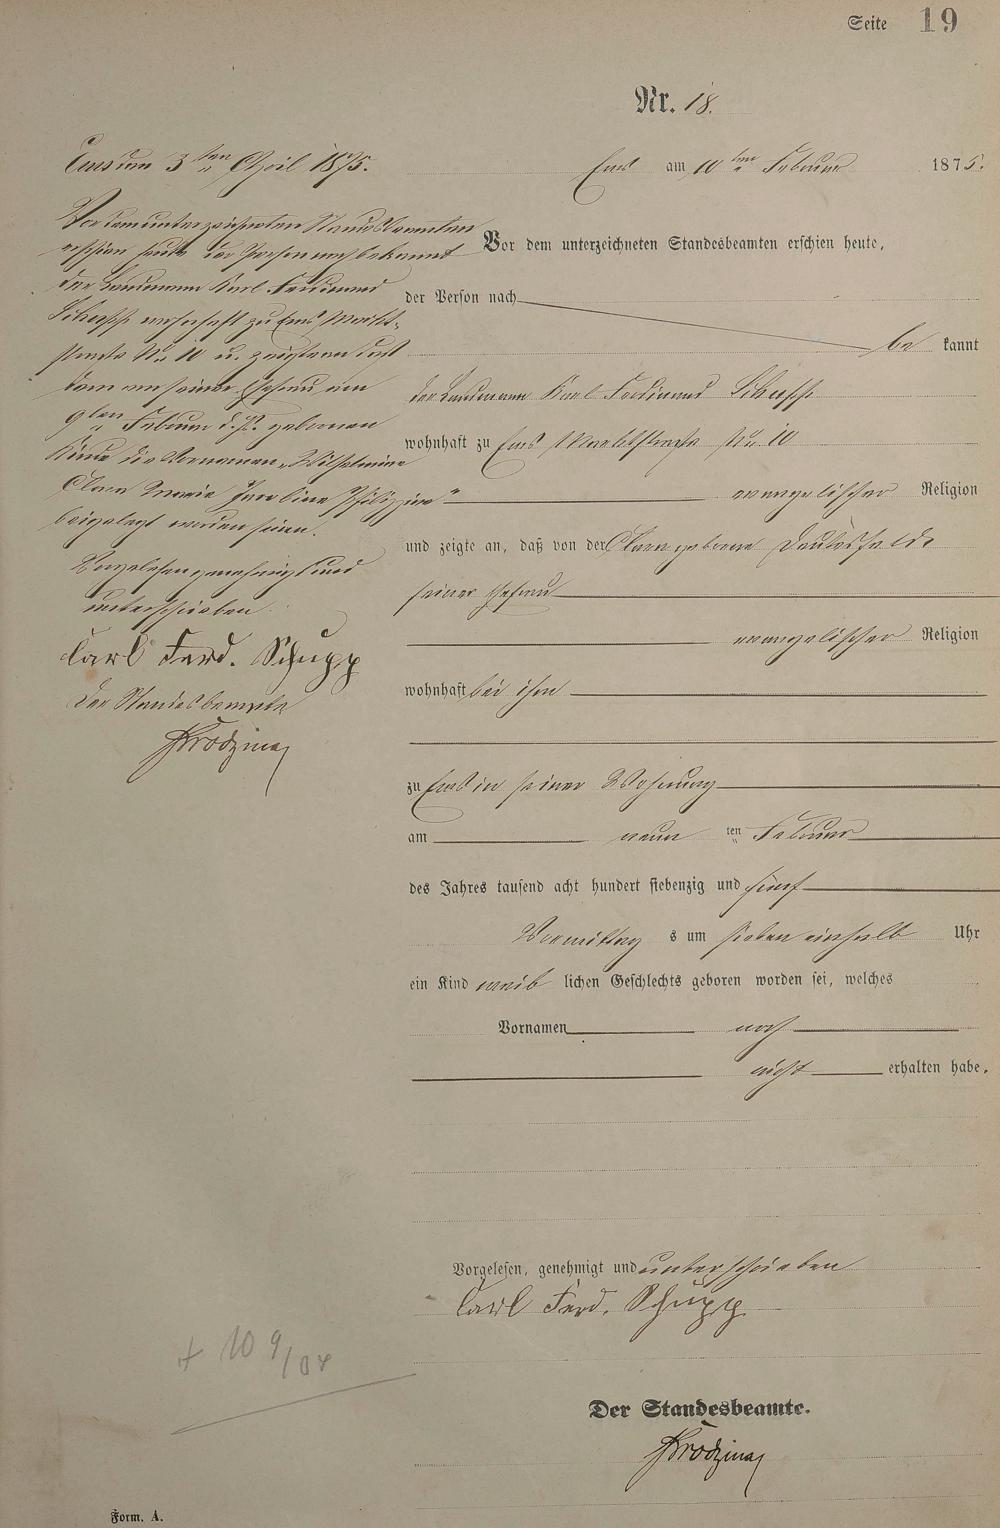 Seite 19
Nr. 18.
Ems am 10ten Februar 1875.
Vor dem unterzeichneten Standesbeamten erschien heute,
der Person nach
be kannt
der Kaufmann Karl Ferdinand Schupp
wohnhaft zu Ems Marktstraße No. 10
evangelischer Religion
und zeigte an, daß von der Clara geborene
seiner Ehefrau
evangelischer Religion
wohnhaft bei ihm
zu Ems in seiner Wohnung
am neun ten Februar
des Jahres tausend acht hundert siebenzig und fünf
Vormittag s um sieben einhalb Uhr
ein Kind weib lichen Geschlechts geboren worden sei, welches
Vornamen noch
nicht erhalten habe.
Vorgelesen, genehmigt und unterschrieben
Carl Ferd. Schupp
Der Standesbeamte.
Ems am 3ten April 1875.
Vor dem unterzeichneten Standesbeamten
erschien heute der Person nach bekannt
der Kaufmann Karl Ferdinand
Schupp wohnhaft zu Ems Markt-
straße No. 10 u. zeigte an daß
dem von seiner Ehefrau am
9ten Februar d. J. geborenen
Kinde die Vornamen "Wilhelmine
Clara Maria Philippine"
beigelegt worden seien.
Vorgelesen genehmigt und
unterschrieben
Carl Ferd. Schupp
Der Standesbeamte
Form. A.